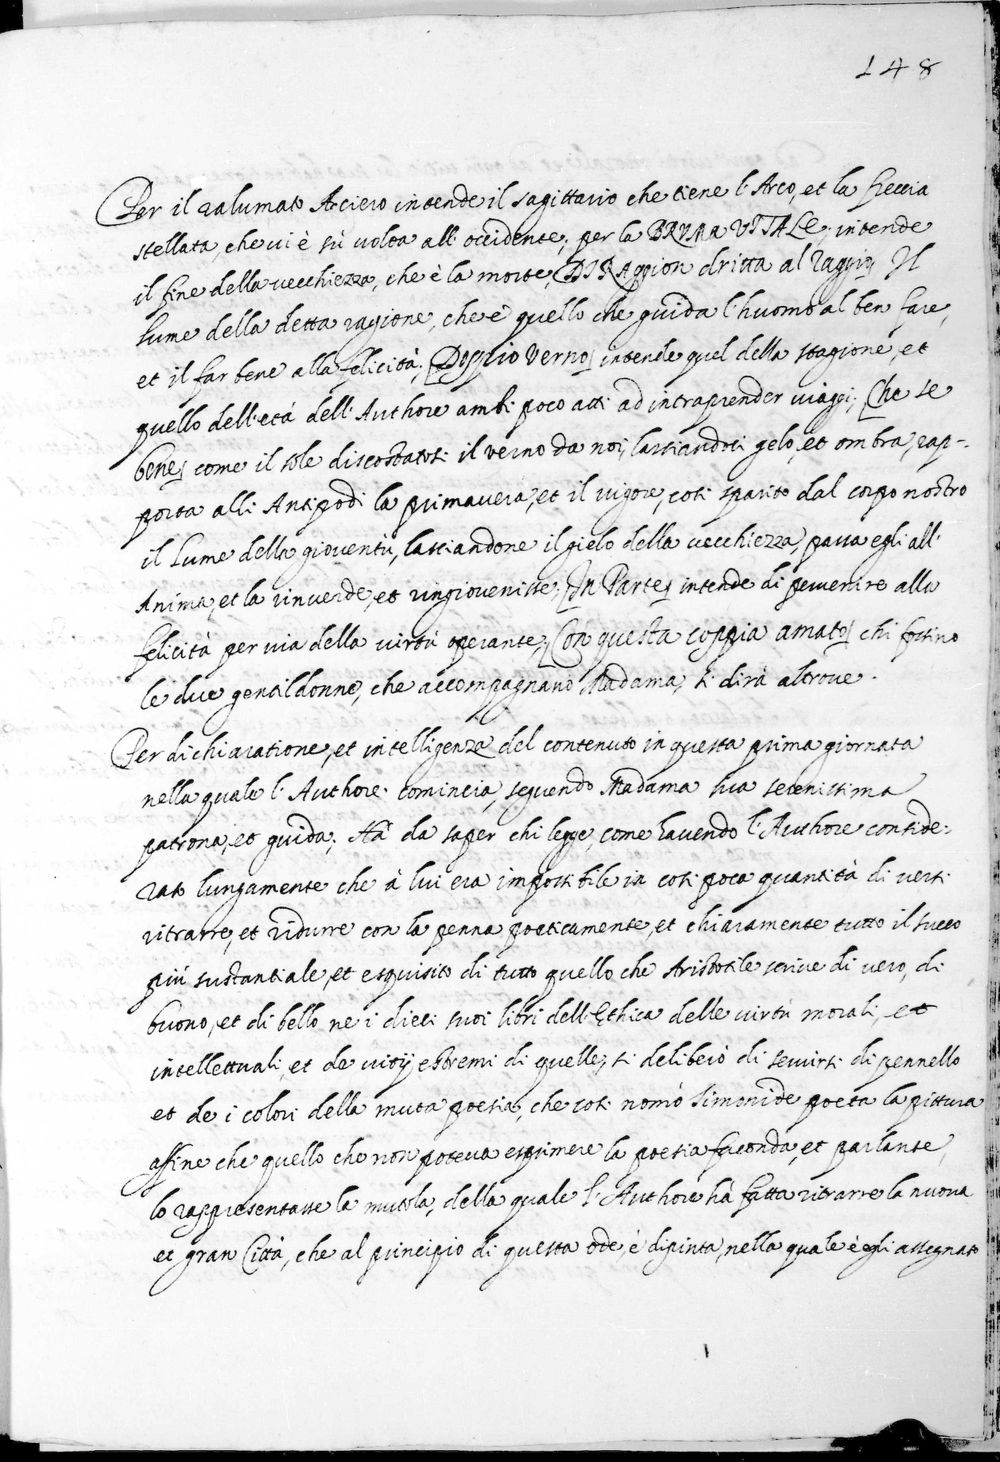 148
Per il ralumato Arciero intende il sagittario che tiene l'Arco, et la freccia
stellata, che vi è sù volta all'occidente; per la BRUMA VITALE; intende
il fine della vecchiezza, che è la morte, [DI RAggion dritta al raggio] Il
lume della detta ragione, che è quello che guida l'huomo al ben fare,
et il far bene alla felicità; [Doppio Verno] intende quel della stagione, et
quello dell'età dell'Authore ambi poco atti ad intraprender viaggi; [Che se
bene] come il sole discostatosi il verno da noi, lasciandoci gelo, et ombra, rap-
porta alli Antipodi la primavera, et il vigore, così sparito dal corpo nostro
il lume della gioventù, lasciandone il gielo della vecchiezza, passa egli all'
Anima, et la rinverde, et ringiovenisse; [In Parte] intende di pervenire alla
felicità per via della virtù operante; [Con questa coppia amato] chi fossino
le due gentildonne, che accompagnano Madama, si dirà altrove.
Per dichiaratione, et intelligenza del contenuto in questa prima giornata
nella quale l'Authore comincia, seguendo Madama sua serenissima
patrona, et guida; Hà da saper chi legge, come havendo l'Authore conside-
rato lungamente che à lui era impossibile in così poca quantità di versi
ritrarre, et ridurre con la penna poeticamente, et chiaramente tutto il succo
più sustantiale, et esquisito di tutto quello che Aristotile scrive di vero, di
buono, et di bello ne i dieci suoi libri dell'Ethica delle virtù morali, et
intellettuali, et de vitij estremi di quelle; si deliberò di servirsi di pennello
et de i colori della muta poesia, che così nomò Simonide poeta la pittura
affine che quello che non poteva esprimere la poesia faconda, et parlante,
lo rappresentasse la mutola, della quale l'Authore hà fatta ritrarre la nuova
et gran Città, che al principio di questa ode, è dipinta, nella quale è egli assegnato